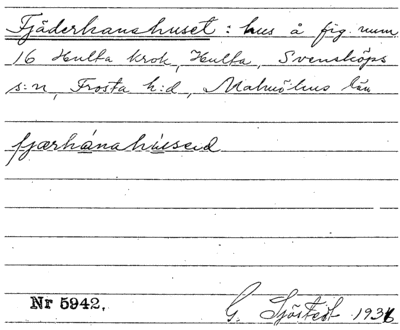 Fjäderhanshuset: hus å fig. num
16 Hulta krok, Hulta, Svensköps
s:n, Frosta h:d, Malmöhus län
fjærhánahúsed
Nr 5942.
G. Sjöstedt 1936